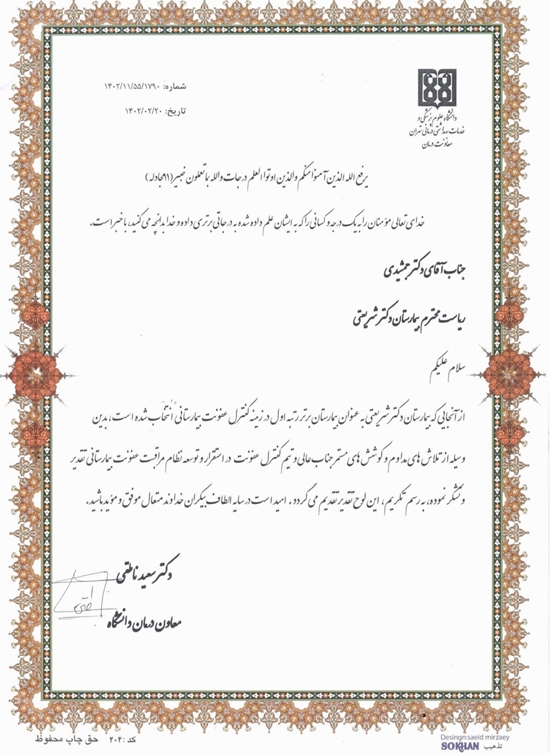 شماره: ۱۴۰۲/۱۱/۵۵/۱۷۹۰
تاریخ: ۱۴۰۲/۰۲/۲۰
دانشگاه علوم پزشکی و
خدمات بهداشتی درمانی تهران
معاونت درمان
یرفع الله الذین آمنوا منکم والذین اوتوا العلم درجات والله بما تعلون خبیر (۱۱مجادله)
خدای تعالی مؤمنان را به یک درجه و کسانی را که به ایشان علم داده شده به درجاتی برتری داده و خدا بدانچه می کنید، با خبر است.
جناب آقای دکتر جمشیدی
ریاست محترم بیمارستان دکتر شریعتی
سلام علیکم
از آنجایی که بیمارستان دکتر شریعتی به عنوان بیمارستان برتر رتبه اول در زمینه کنترل عفونت بیمارستانی انتخاب شده است، بدین
وسیله از تلاش های مداوم و کوشش های مستمر جناب عالی و تیم کنترل عفونت در استقرار و توسعه نظام مراقبت عفونت بیمارستانی تقدیر
و تشکر نموده، به رسم تکریم، این لوح تقدیر تقدیم می گردد. امید است در سایه الطاف بیکران خداوند متعال موفق و مؤید باشید.
دکتر سعید ناطقی
معاون درمان دانشگاه
کد :۲۰۲ حق چاپ محفوظ
Desingn:saeid mirzaey
تذهیب SOKHAN